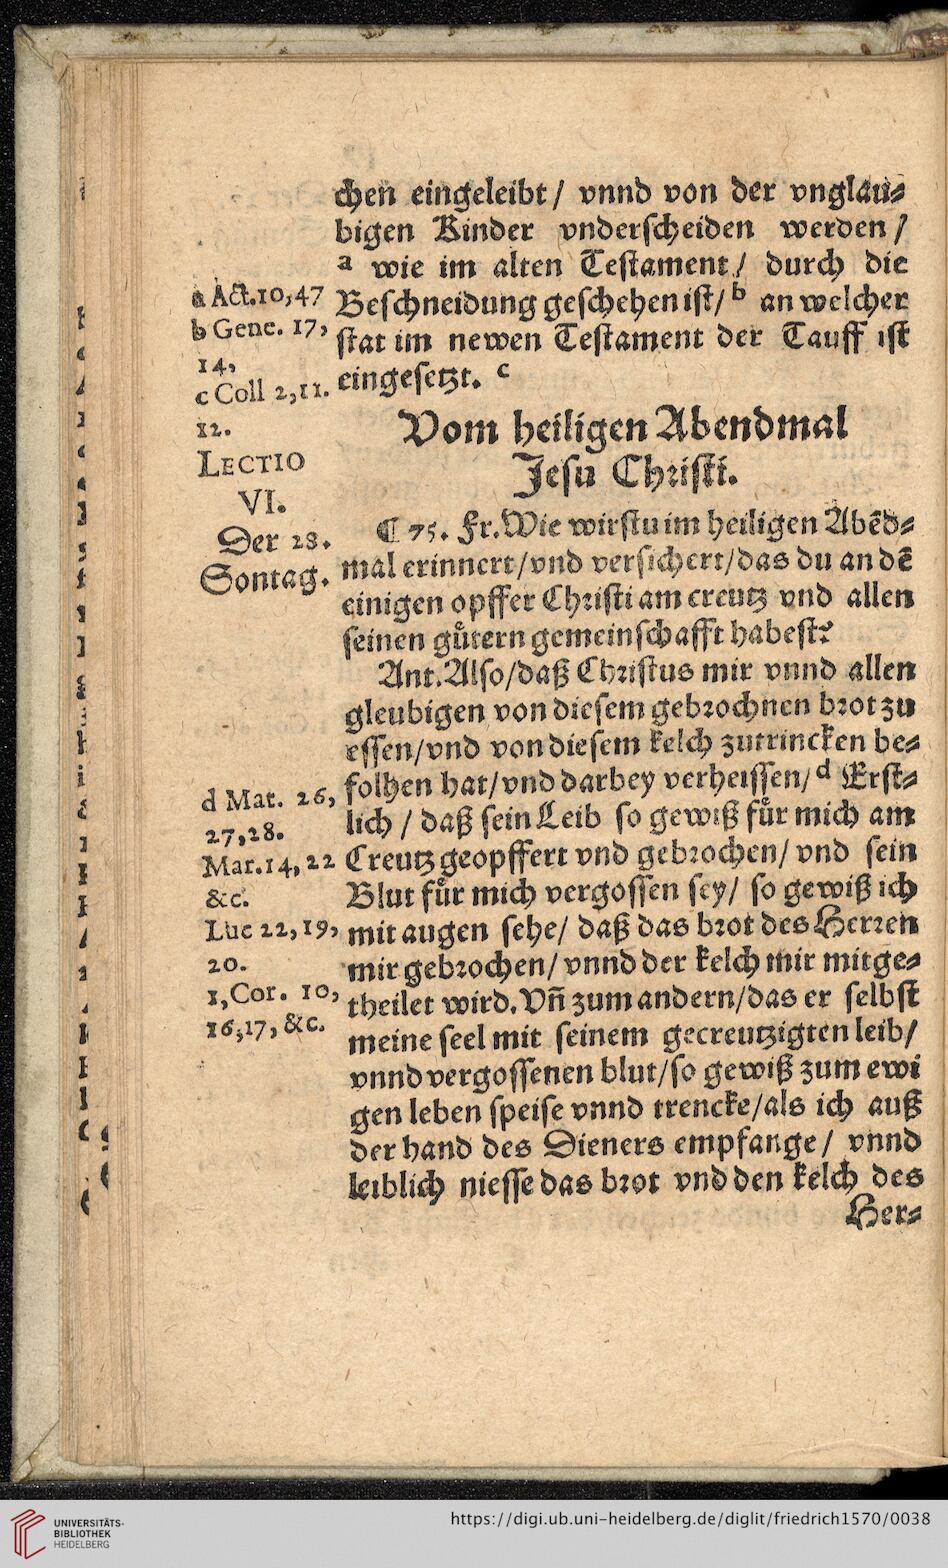 chen eingeleibt / vnnd von der vnglaͤu⸗
bigen Kinder vnderscheiden werden /
a wie im alten Testament / durch die
Beschneidung geschehen ist / b an welcher
stat im newen Testament der Tauff ist
eingesetzt. c
a Act. 10, 47
b Gene. 17,
14,
c Coll 2, 11.
12.
Vom heiligen Abendmal
Jesu Christi.
LECTIO
VI.
Der 28.
Sontag.
¶ 75. Fr. Wie wirstu im heiligen Abẽd⸗
mal erinnert / vnd versichert / das du an dẽ
einigen opffer Christi am creutz vnd allen
seinen guͤtern gemeinschafft habest?
Ant. Also / daß Christus mir vnnd allen
gleubigen von diesem gebrochnen brot zu
essen / vnd von diesem kelch zutrincken be⸗
folhen hat / vnd darbey verheissen / d Erst⸗
lich / daß sein Leib so gewiß fuͤr mich am
Creutz geopffert vnd gebrochen / vnd sein
Blut fuͤr mich vergossen sey / so gewiß ich
mit augen sehe / daß das brot des Herren
mir gebrochen / vnnd der kelch mir mitge⸗
theilet wird. Vn̄ zum andern / das er selbst
meine seel mit seinem gecreutzigten leib /
vnnd vergossenen blut / so gewiß zum ewi
gen leben speise vnnd trencke / als ich auß
der hand des Dieners empfange / vnnd
leiblich niesse das brot vnd den kelch des
Her⸗
d Mat. 26,
27, 28.
Mar. 14, 22
&c.
Luc 22, 19,
20.
1, Cor. 10,
16, 17, &c.
UNIVERSITÄTS-
BIBLIOTHEK
HEIDELBERG
https://digi.ub.uni-heidelberg.de/diglit/friedrich1570/0038